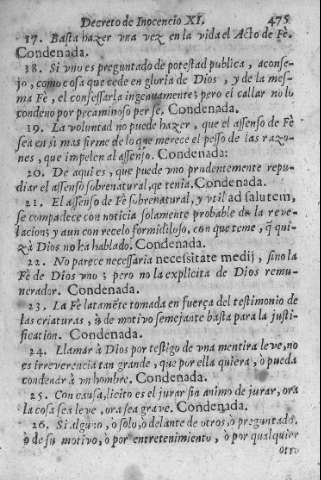 Decreto de Inocencio XI. 475
17. Basta hazer vna vez en la vida el Acto de Fè.
Condenada.
18. Si vno es preguntado de potestad publica, aconse-
jo, como cosa que cede en gloria de Dios, y de la mes-
ma Fè, el confessarla ingenuamente; pero el callar no lo
condeno por pecaminoso per se. Condenada.
19. La voluntad no puede hazer, que el assenso de Fè
sea en si mas firme de lo que merece el pesso de las razo-
nes, que impelen al assenso. Condenada:
20. De aqui es, que puede vno prudentemente repu-
diar el assenso sobrenatural, q̃ tenia. Condenada.
21. El assenso de Fè sobrenatural, y vtil ad salutem,
se compadece con noticia solamente probable de la reve-
lacion; y aun con recelo formidiloso, con que teme, q̃ qui-
zà Dios no ha hablado. Condenada.
22. No parece necessaria necessitate medij, sino la
Fè de Dios vno; pero no la explicita de Dios remu-
nerador. Condenada.
23. La Fè latamẽte tomada en fuerça del testimonio de
las criaturas, ò de motivo semejante basta para la justi-
ficacion. Condenada.
24. Llamar à Dios por testigo de vna mentira leve, no
es irreverencia tan grande, que por ella quiera, ò pueda
condenar à vn hombre. Condenada.
25. Con causa, licito es el jurar sin animo de jurar, ora
la cosa sea leve, ora sea grave. Condenada.
26. Si alguno, ò solo, ò delante de otros, ò preguntado,
ò de su motivo, ò por entretenimiento, ò por qualquier
otro